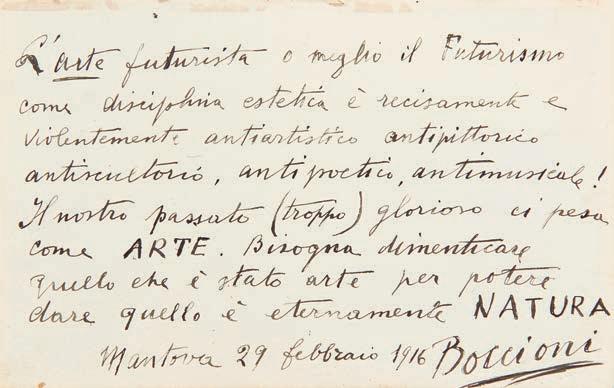 L'arte futurista o meglio il Futurismo
come disciplina estetica è recisamente e
violentemente antiartistico antipittorico
antiscultorio, antipoetico, antimusicale!
Il nostro passato (troppo) glorioso ci pesa
come ARTE. Bisogna dimenticare
quello che è stato arte per potere
dare quello è eternamente NATURA
Mantova 29 febbraio 1916 Boccioni